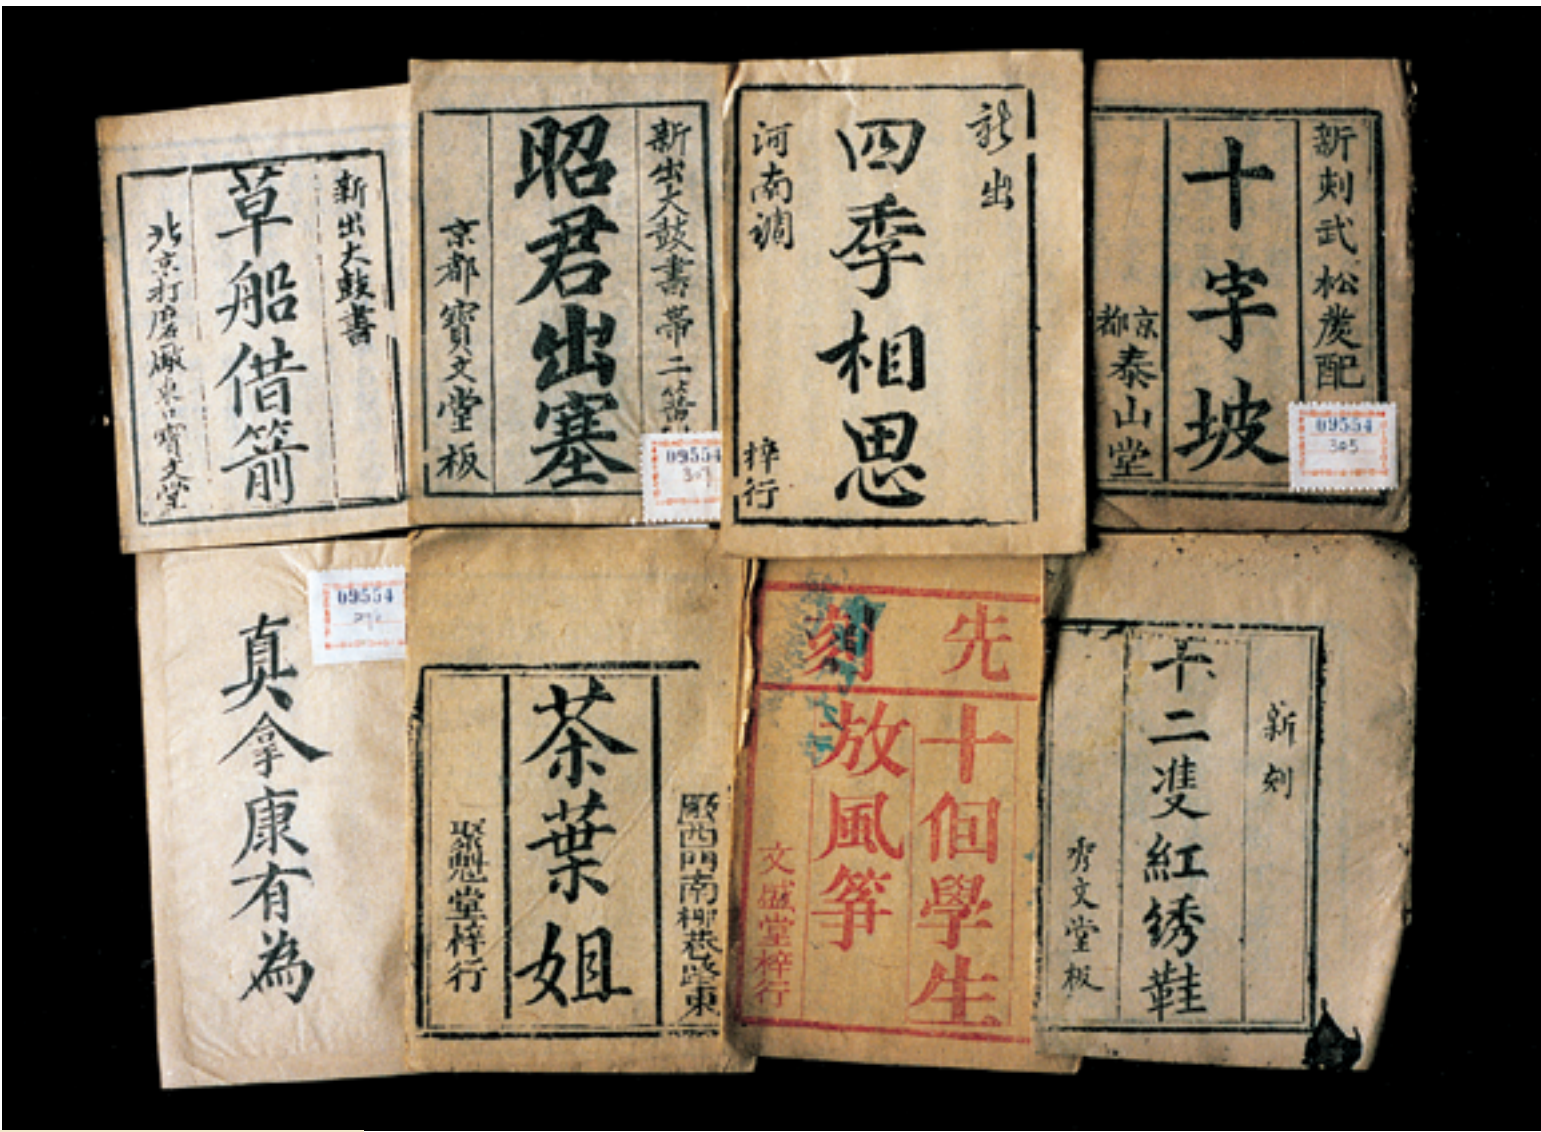 新出大鼓書
草船借箭
北京打磨廠東口寶文堂
新出大鼓書帶二簧
昭君出塞
京都寶文堂板
09554
307
新出
四季相思
河南調
梓行
新刻武松發配
十字坡
京都
泰山堂
09554
305
09554
真拿康有為
廠西門南柳巷路東
茶葉姐
聚魁堂梓行
先刻
十個學生
放風筝
文盛堂梓行
新刻
十二双紅绣鞋
秀文堂板